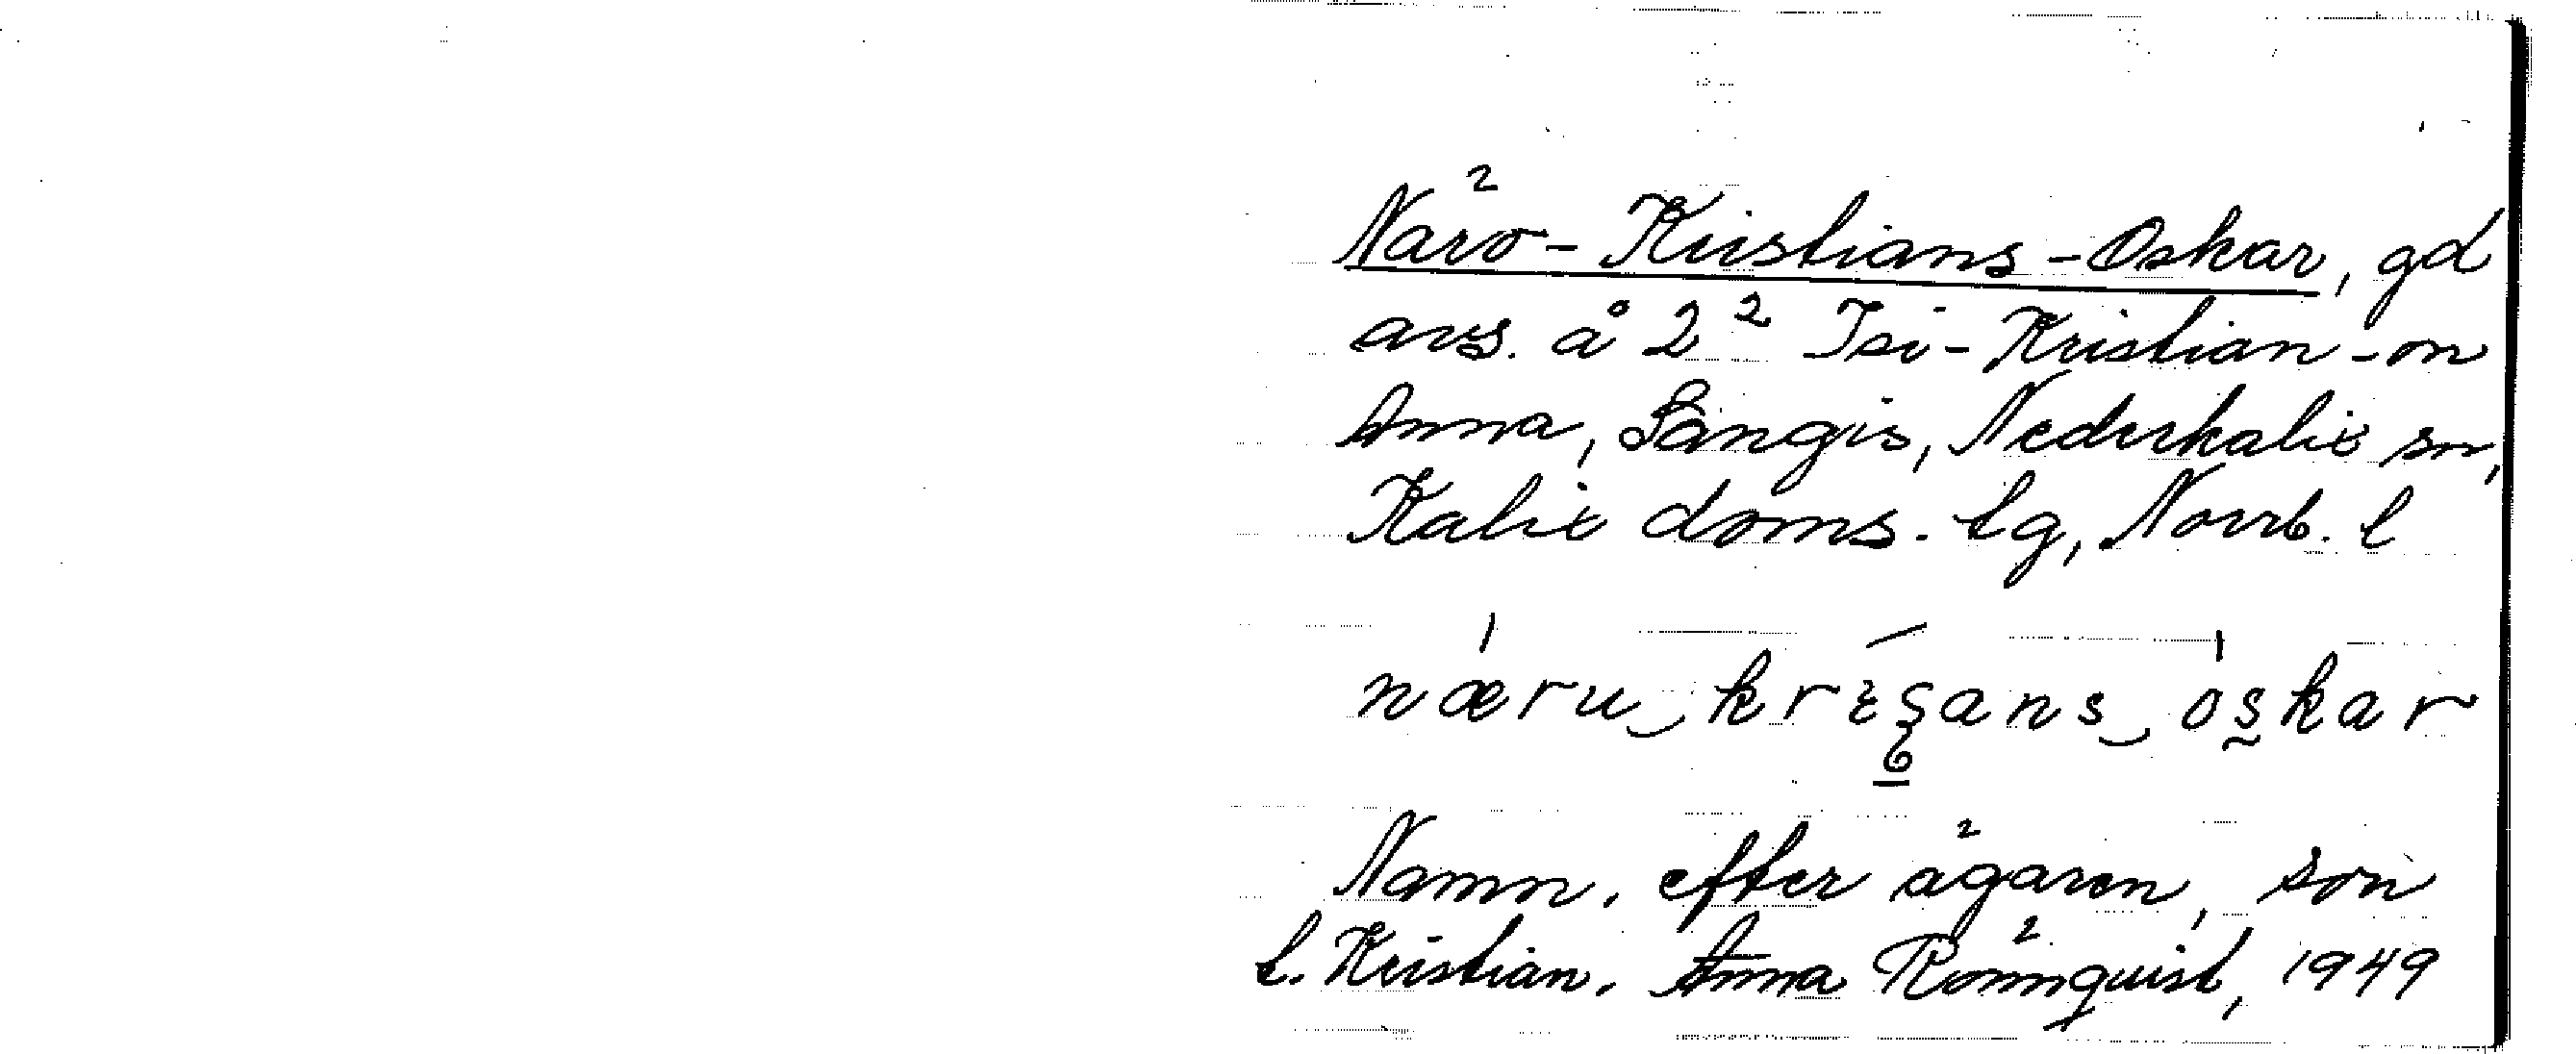 Närö-Kristians-Oskar, gd
avs. å 2² Isi-Kristian-on
Anna, Sängis, Nederkalix sn,
Kalix doms. tg, Norrb. l
næru krɛʂans oskar
Namn. efter ägaren, son
t. Kristian. Anna Rönnquist, 1949